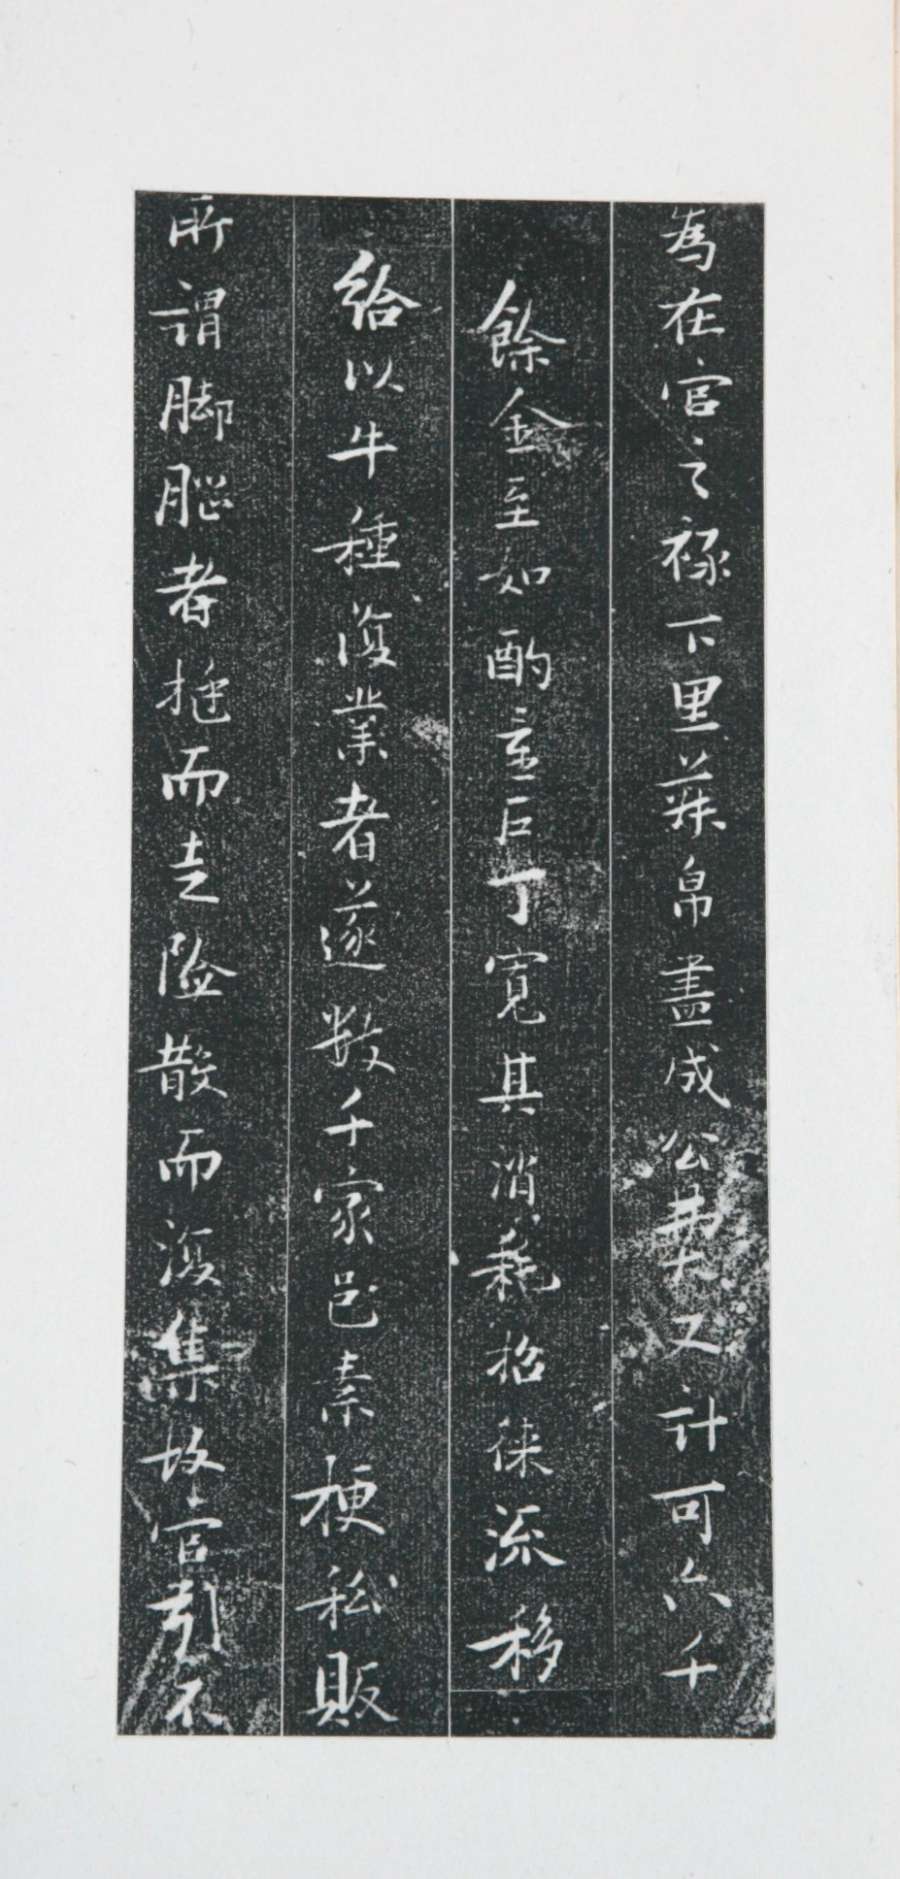 為在官之祿下里蔴帛盡成公費又計可六千
餘金至如酌逃户丁寬其消耗招徠流移
給以牛種復業者遂數千家邑素梗私販
所謂脚腦者挖而走險散而復集故官引不